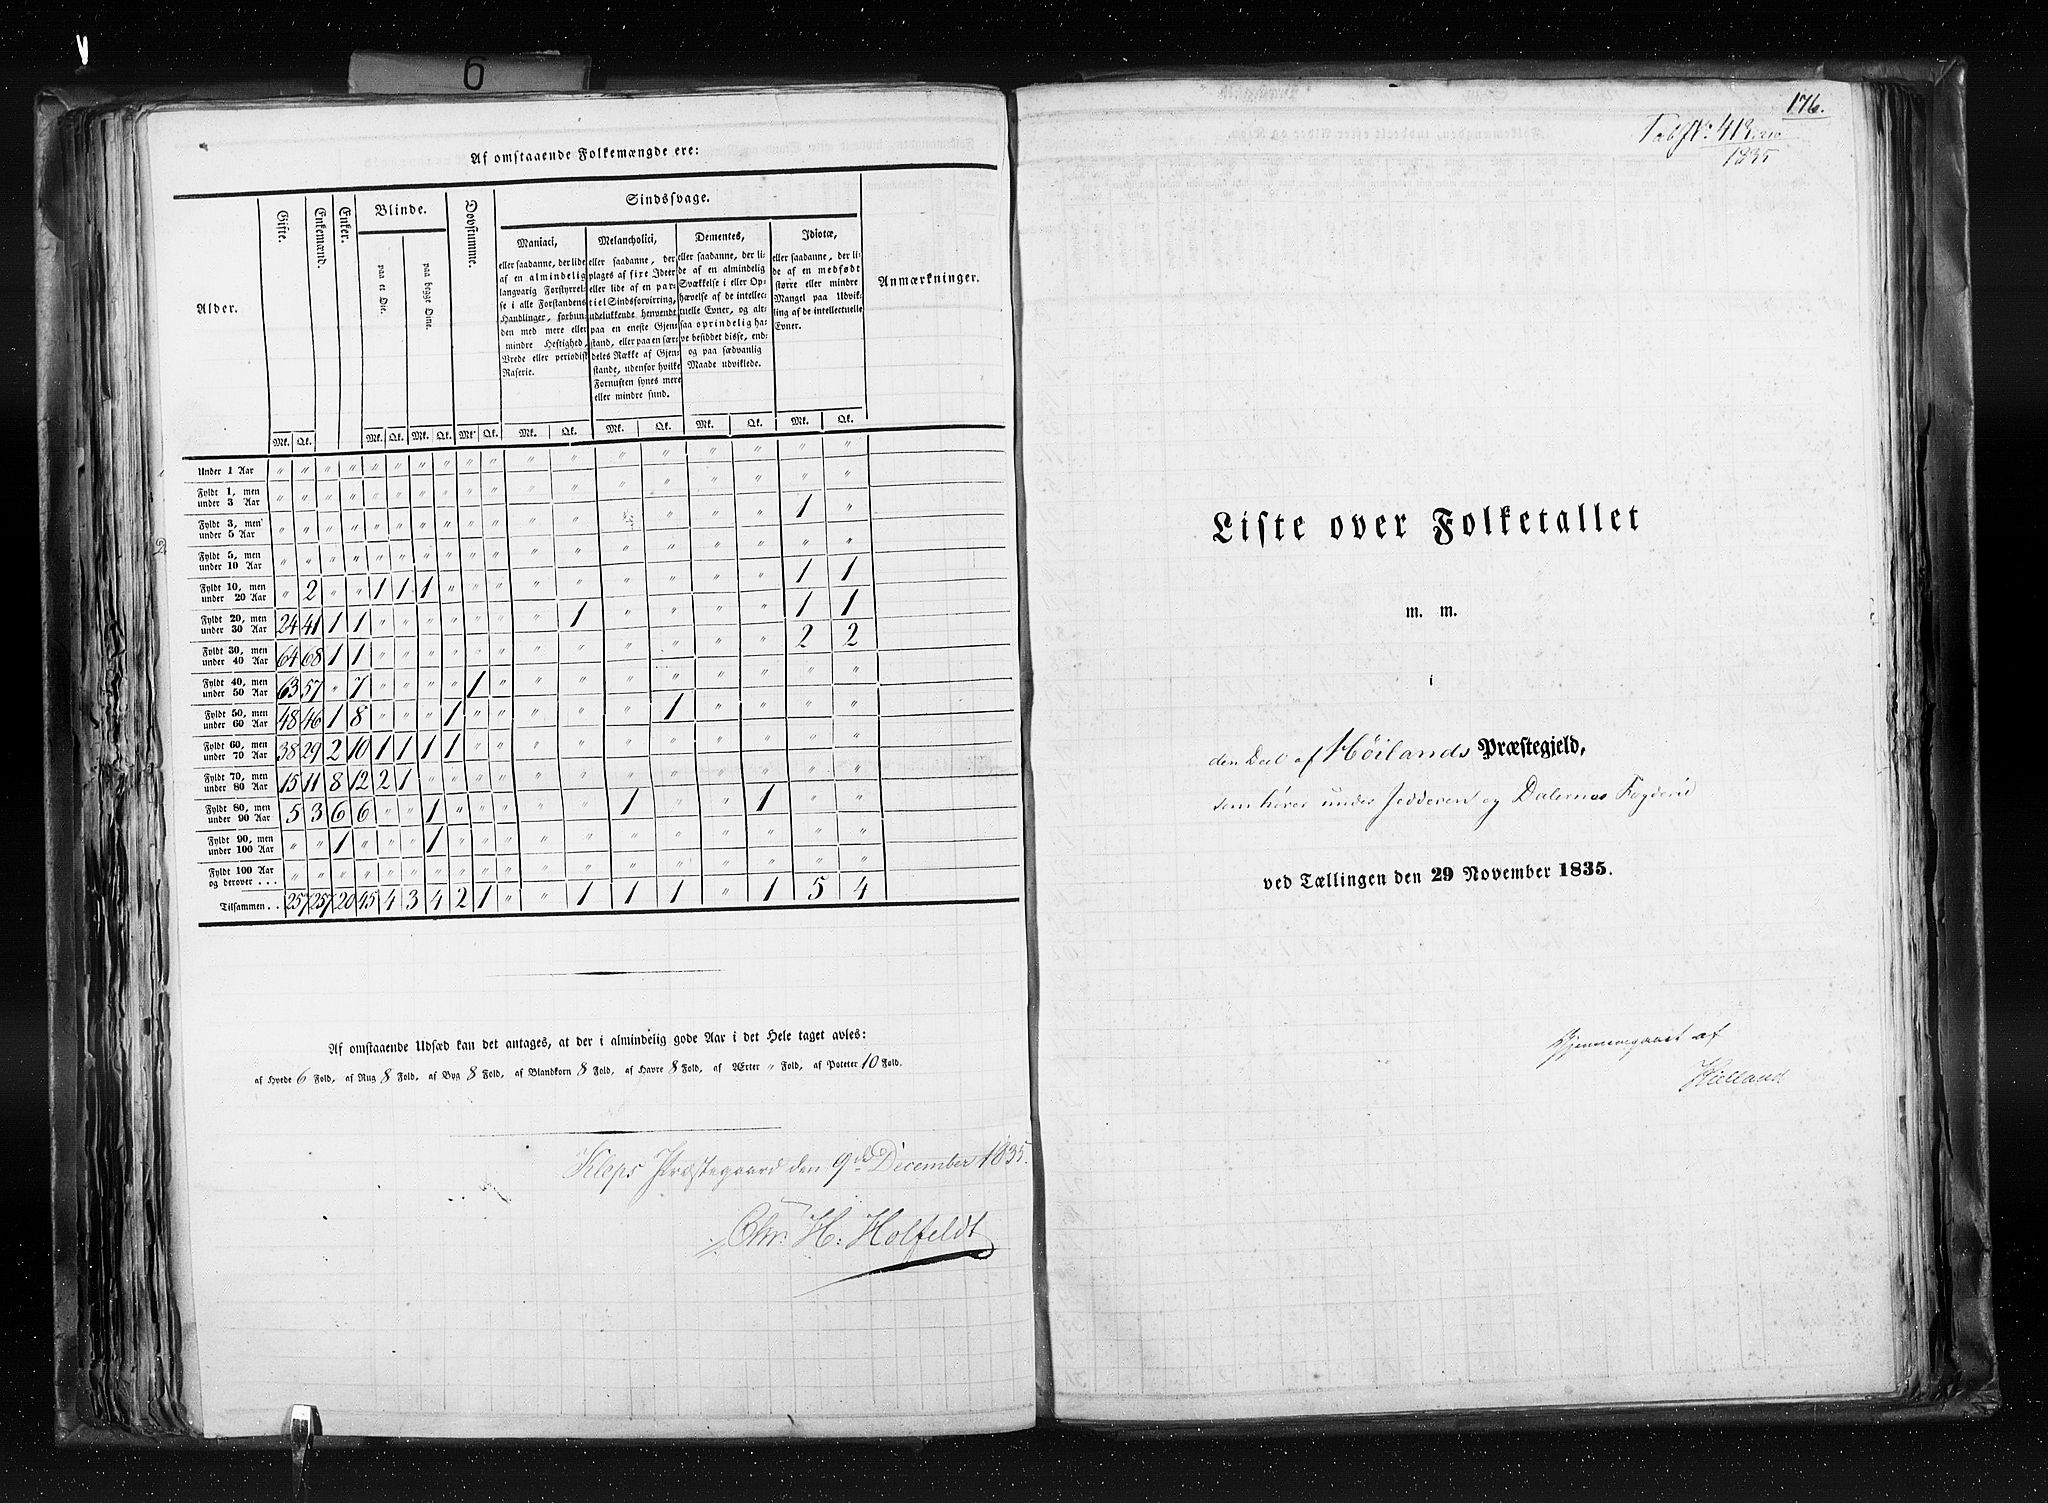 6
Af omstaaende Folkemængde ere:
Alder. Gifte. Enkemænd. Enker. Blinde. Dovstumme. Sindssvage. Anmærkninger.
paa et Øie. paa begge Øine.
Maniaci,
eller saadanne, der lide
af en almindelig
langvarig Forstyrrel-
se i alle Forstandens
Handlinger, forbun-
den med mere eller
mindre Heftighed,
Vrede eller periodisk
Raserie.
Melancholici,
eller saadanne, der
plages af fixe Ideer
eller lide af en par-
tiel Sindsforvirring,
udelukkende henvendt
paa en eneste Gjen-
stand, eller paa en sær-
deles Række af Gjen-
stande, udenfor hvilke
Fornuften synes mere
eller mindre sund.
Dementes,
eller saadanne, der li-
de af en almindelig
Svækkelse i eller Op-
hævelse af de intellec-
tuelle Evner, og alt-
saa oprindelig ha-
ve besiddet disse, end-
og paa sædvanlig
Maade udviklede.
Idiotæ,
eller saadanne, der li-
de af en medfødt
større eller mindre
Mangel paa Udvik-
ling af de intellectuelle
Evner.
Mk. Qk. Mk. Qk. Mk. Qk. Mk. Qk. Mk. Qk. Mk. Qk. Mk. Qk. Mk. Qk.
Under 1 Aar " " " " " " " " " " " " " " " " " "
Fyldt 1, men under 3 Aar " " " " " " " " " " " " " " " " " "
Fyldt 3, men under 5 Aar " " " " " " " " " " " " " " " " 1 "
Fyldt 5, men under 10 Aar " " " " " " " " " " " " " " " " " "
Fyldt 10, men under 20 Aar " 2 " " 1 1 1 " " " " " " " " " 1 1
Fyldt 20, men under 30 Aar 24 41 1 1 " " " " " " " 1 " " " " 1 1
Fyldt 30, men under 40 Aar 64 68 1 1 " " " " " " " " " " " " 2 2
Fyldt 40, men under 50 Aar 63 57 " 7 " " " " 1 " " " " " " " " "
Fyldt 50, men under 60 Aar 48 46 1 8 " " " 1 " " " " " 1 " " " "
Fyldt 60, men under 70 Aar 38 29 2 10 1 1 1 1 " " " " " " " " " "
Fyldt 70, men under 80 Aar 15 11 8 12 2 1 " " " " " " " " " " " "
Fyldt 80, men under 90 Aar 5 3 6 6 " " 1 " " " " " 1 " " 1 " "
Fyldt 90, men under 100 Aar " " 1 " " " 1 " " " " " " " " " " "
Fyldt 100 Aar og derover . . . " " " " " " " " " " " " " " " " " "
Tilsammen . . 257 257 20 45 4 3 4 2 1 " " 1 1 1 " 1 5 4
Af omstaaende Udsæd kan det antages, at der i almindelig gode Aar i det Hele taget avles:
af Hvede 6 Fold, af Rug 8 Fold, af Byg 8 Fold, af Blandkorn 8 Fold, af Havre 8 Fold, af Ærter " Fold, af Poteter 10 Fold.
Kleps Præstegaard den 9de December 1835.
Chr. H. Holfeldt
176.
1835
Liste over Folketallet
m. m.
i
den Deel af Höilands Præstegjeld,
som hører under Jedderen og Dalernes Fogderie
ved Tællingen den 29 November 1835.
Gjennemgaaet af